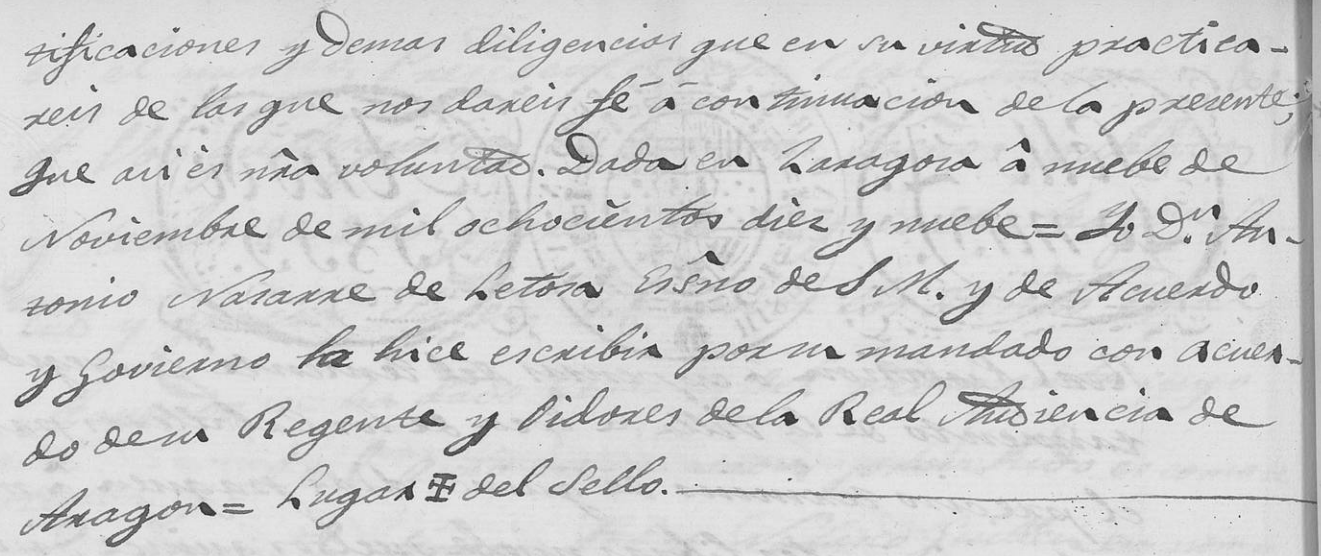 tificaciones y demas diligencias que en su virtud practica-
reis de las que nos dareis fé á continuacion de la presente;
que asi és nr̃a voluntad. Dada en Zaragoza â nuebe de
Noviembre de mil ochocientos diez y nuebe = Yo Dⁿ. An-
tonio Nasarre de Letosa Esc̃no de S. M. y de Acuerdo
y Govierno la hice escribir por su mandado con acuer-
do de su Regente y Oidores de la Real Audiencia de
Aragon = Lugar ✠ del Sello.